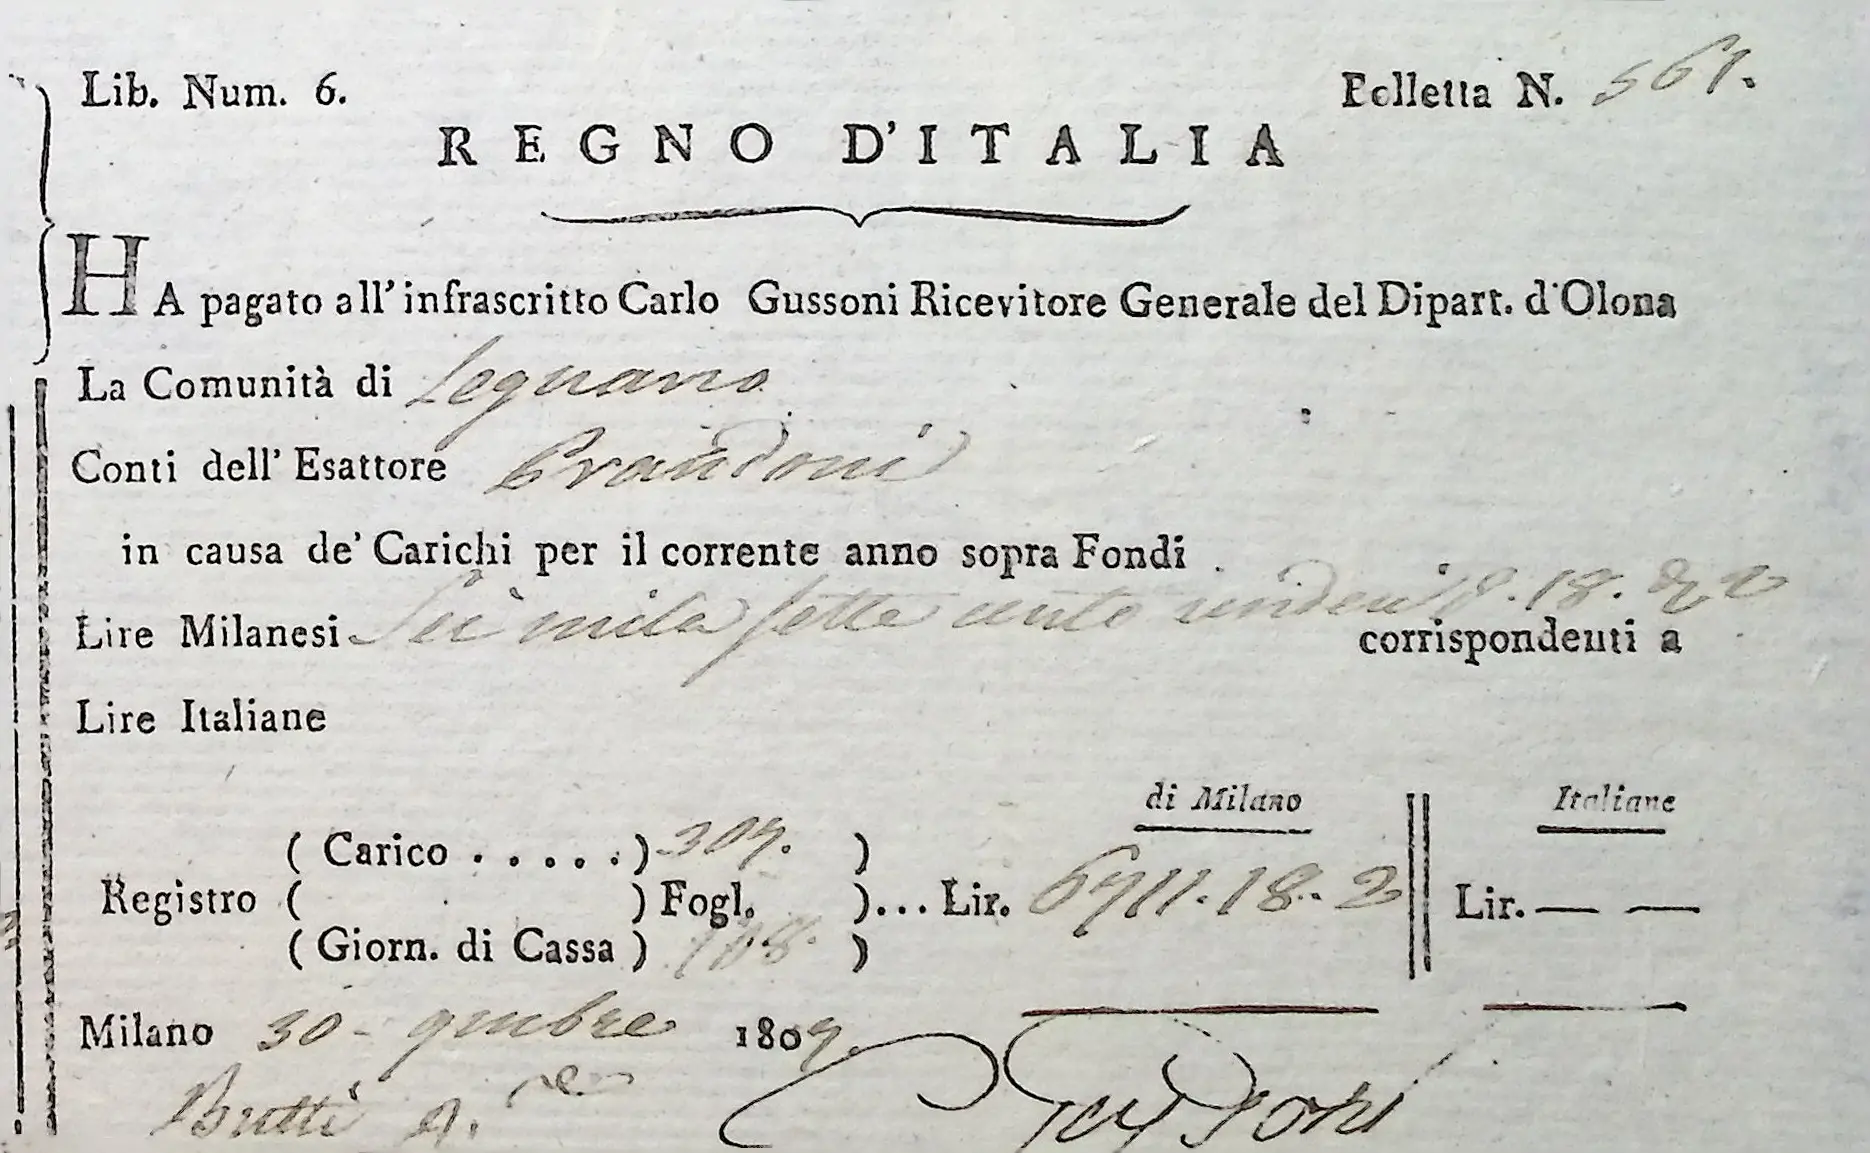 Lib. Num. 6.
Bolletta N. 561.
REGNO D'ITALIA
HA pagato all' infrascritto Carlo Gussoni Ricevitore Generale del Dipart. d'Olona
La Comunità di Legnano
Conti dell' Esattore Brandoni
in causa de' Carichi per il corrente anno sopra Fondi
Lire Milanesi Sei mila sette cento undeci 18. & 2
corrispondenti a
Lire Italiane
di Milano Italiane
( Carico . . . . . ) 307. )
Registro ( ) Fogl. )... Lir. 6711.18.2 Lir. — —
( Giorn. di Cassa ) 108. )
Milano 30 - 9mbre 1807.
Butti Gussoni